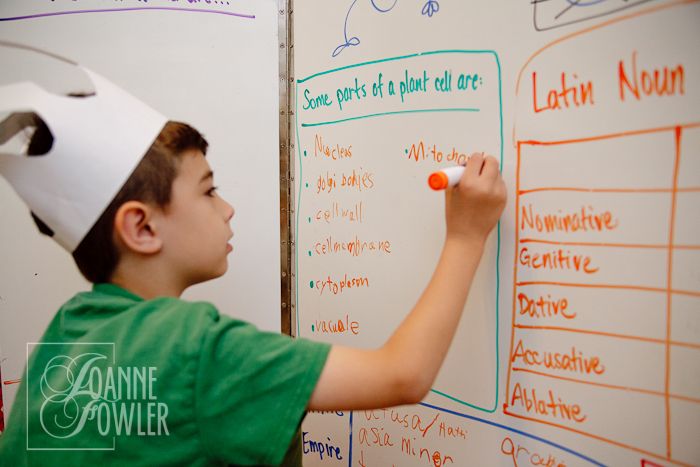 Some parts of a plant cell are:
Nucleus
golgi bodies
cell wall
cellmembrane
cytoplasm
vacuale
Mitochon
Latin Noun
Nominative
Genitive
Dative
Accusative
Ablative
Empire
asia minor
JOANNE
FOWLER